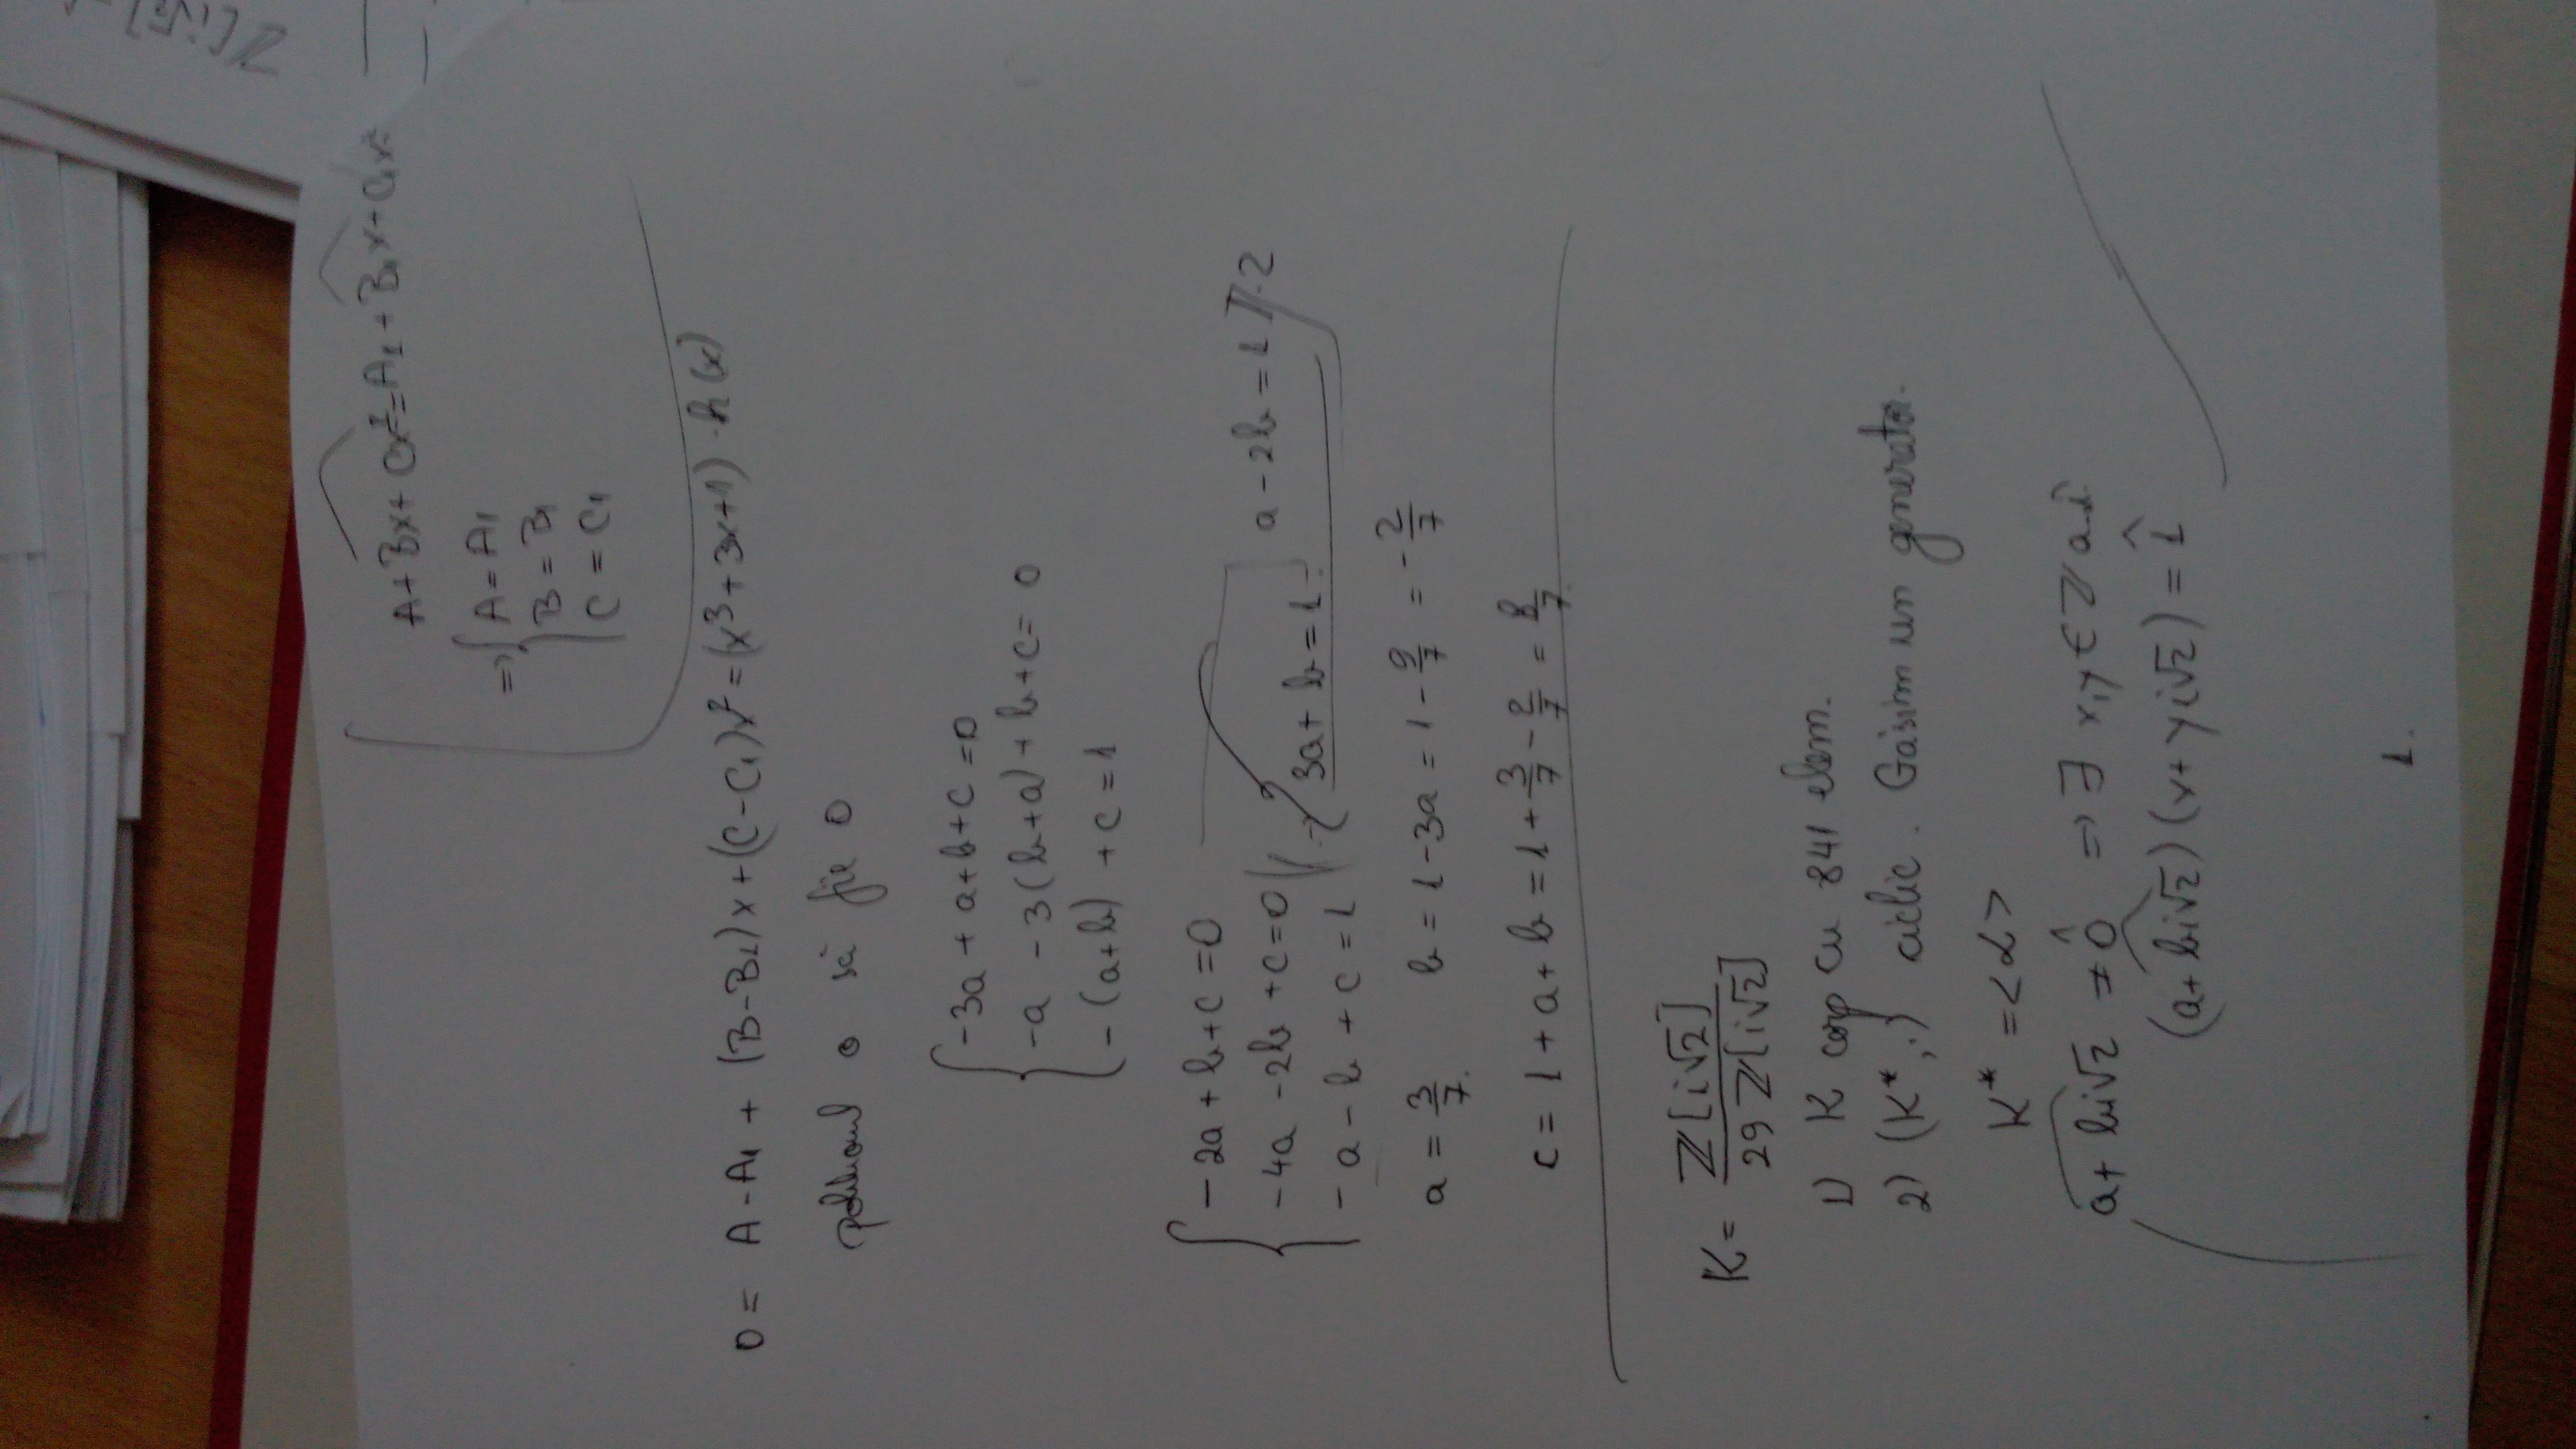 Z[i√2]
A+Bx+Cx²=A₁+B₁x+C₁x²
=> { A=A₁
B=B₁
C=C₁
0= A-A₁ + (B-B₁)x+(C-C₁)x²=(x³+3x+1)·h(x)
0 să fie 0
{ -3a+a+b+c=0
-a-3(b+a)+b+c=0
-(a+b)+c=1
{ -2a+b+c=0
-4a-2b+c=0
-a-b+c=1
a-2b=1 /·2
3a+b=1
a=3/7. b=1-3a=1-9/7=-2/7
c=1+a+b=1+3/7-2/7=8/7.
K= Z[i√2] / 29Z[i√2]
1) K corp cu 841 elem.
2) (K*,·) ciclic. Găsim un generator.
K*=<α>
a+bi√2 ≠ 0̂ => ∃ x,y∈Z a.î.
(a+bi√2)(x+yi√2)=1̂
1.